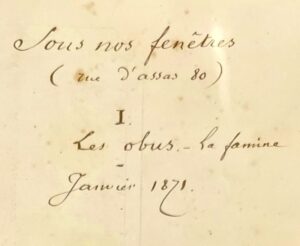 Sous nos fenêtres
( rue d'assas 80 )
I.
Les obus. - La famine
Janvier 1871.